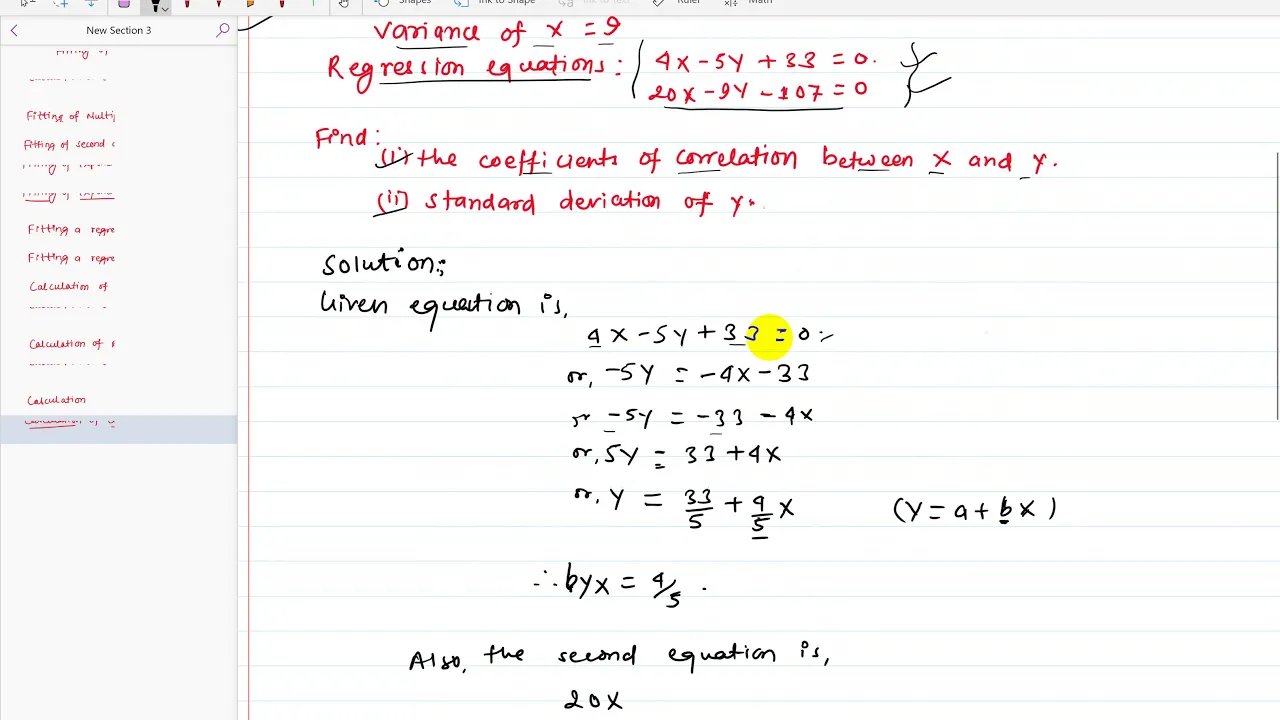 Shapes
Ink to Shape
Ink to Text
Ruler
Math
New Section 3
Fitting of Multip
Fitting of second c
Fitting a regre
Fitting a regre
Calculation of
Calculation of
Calculation
Variance of x = 9
Regression equations: 4x - 5y + 33 = 0.
20x - 9y - 107 = 0
Find:
(i) the coefficients of correlation between x and y.
(ii) standard deviation of y.
Solution:
Given equation is,
4x - 5y + 33 = 0
or, -5y = -4x - 33
or -5y = -33 - 4x
or, 5y = 33 + 4x
or, y = 33/5 + 4/5 x (y = a + bx)
∴ byx = 4/5 .
Also, the second equation is,
20x